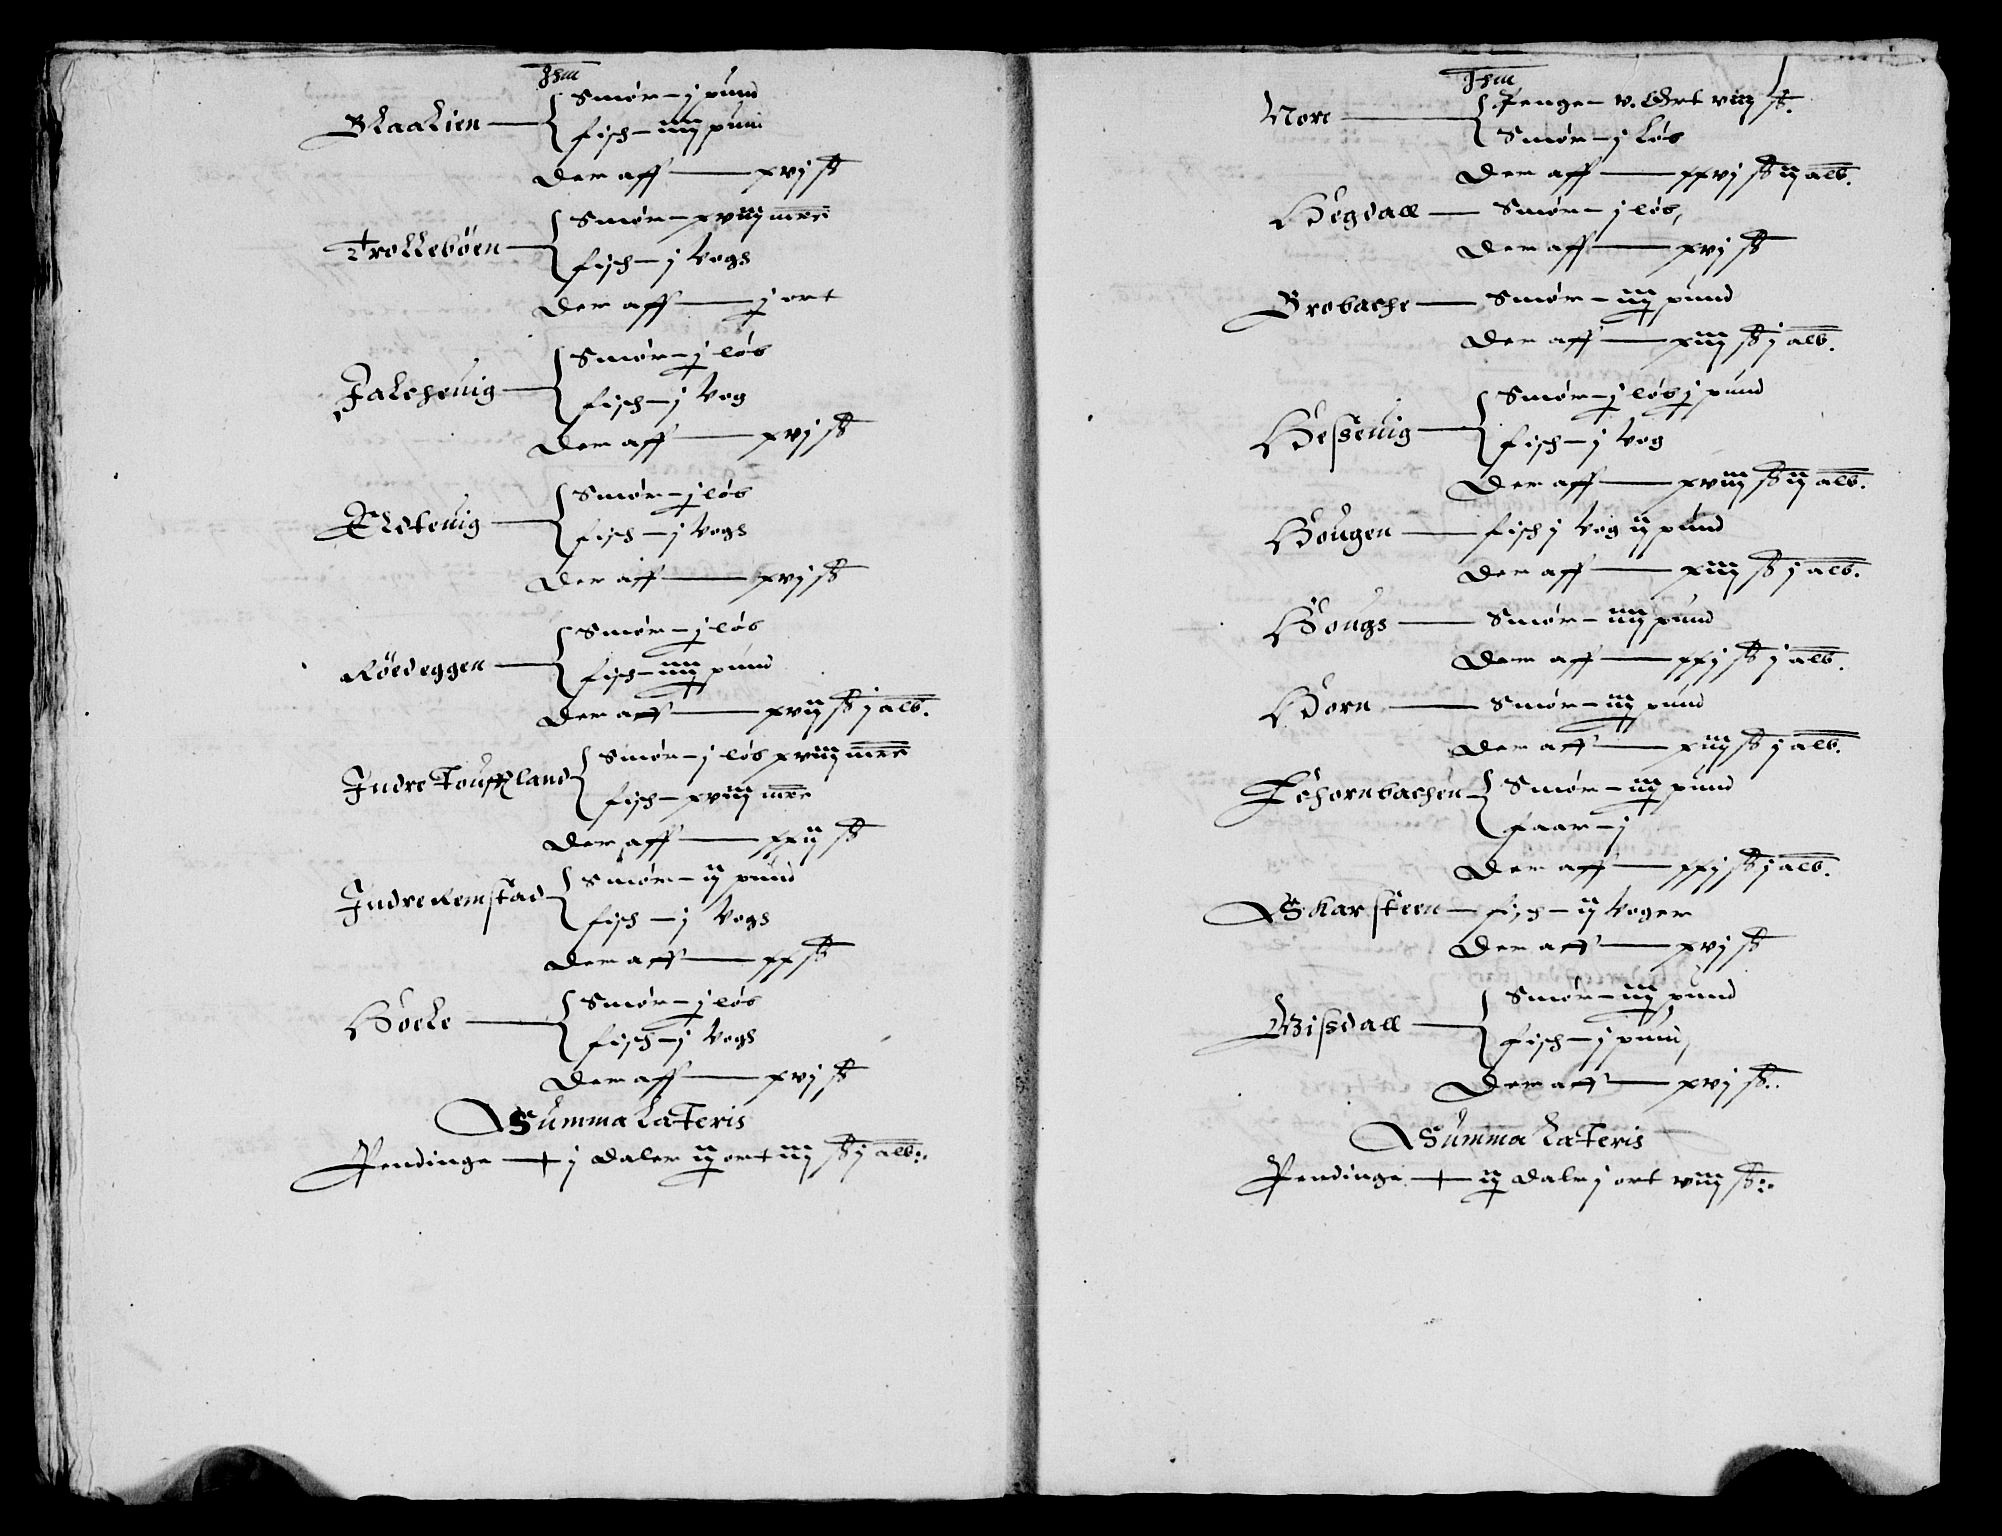 Jhm
Blaalien { Smør – j pund
fisch – iiij pund
Der aff — xvj ß
Trollebøen { Smør – xviij mrc
fisch – j Vogs
Der aff — j ort
Jaleheuig { Smør – j løb
fisch – j Vog
Der aff — xvj ß
Eldeuig { Smør – j løb
fisch – j Vogs
Der aff — xvj ß
Røedeggen { Smør – j løb
fisch – iiij pund
Der aff — xvij ß j alb.
Indre Touffland { Smør – j løb xviij mrc
fisch – xviij mrc
Der aff — xxij ß
Indre Remstad { Smør – ij pund
fisch – j Vogs
Der aff — xx ß
Høele { Smør – j løb
fisch – j Vogs
Der aff — xvj ß
Summa Lateris
Pendinge – j daler ij ort iij ß j alb:
Jhm
Nore { Penge – v. Ort viij ß.
Smør – j løb
Der aff — xxvj ß ij alb.
Høgdall – Smør – j løb,
Der aff — xvj ß
Brobache – Smør – iij pund
Der aff — xiij ß j alb.
Hesseuig { Smør – j løb j pund
fisch – j Vog
Der aff — xviij ß ij alb.
Hougen – fisch j Vog ij pund
Der aff — xiij ß j alb.
Hougs – Smør – iiij pund
Der aff — xxj ß j alb.
Horn – Smør – iij pund
Der aff — xiij ß j alb.
Tehornbachen { Smør – iij pund
faar – j
Der aff — xxj ß j alb.
Skarsteen – fisch – ij Voger
Der aff — xvj ß
Wissdall { Smør – iij pund
fisch – j pund,
Der aff — xvj ß.
Summa Lateris
Pendinge – ij daler j ort viij ß: